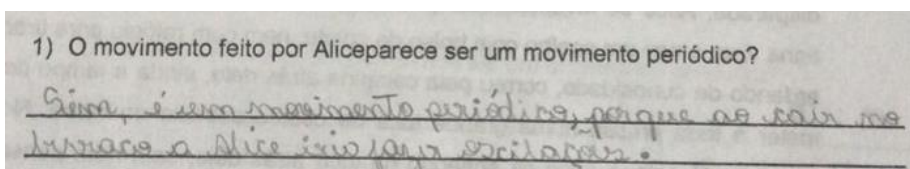 1) O movimento feito por Aliceparece ser um movimento periódico?
Sim, é um movimento periódico, porque ao cair no
buraco a Alice iria fazer oscilações.